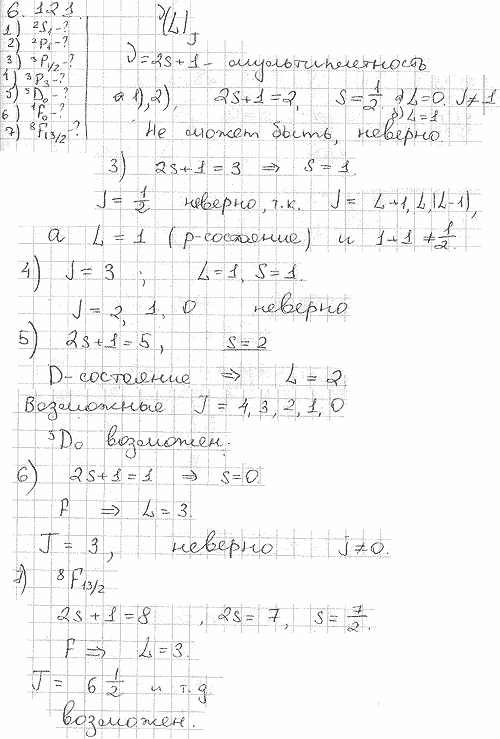 6. 121.
1) ²S₁ - ?
2) ²P₁ - ?
3) ³P₁/₂ - ?
4) ³P₃ - ?
5) ⁵D₀ - ?
6) ¹F₀ - ?
7) ⁸F₁₃/₂ - ?
ᵛ(L)J
ν = 2s+1 - мультиплетность
а 1), 2) 2s+1=2, S=1/2. а) L=0. J≠1
б) L=1
Не может быть, неверно.
3) 2s+1=3 ⇒ S=1
J=1/2 неверно, т.к. J= L+1, L, |L-1|,
а L=1 (p-состояние) и 1+1≠1/2.
4) J=3 ; L=1, S=1.
J=2, 1, 0 неверно
5) 2s+1=5, s=2
D-состояние ⇒ L=2
Возможные J=4,3,2,1,0
⁵D₀ возможен.
6) 2s+1=1 ⇒ s=0.
F ⇒ L=3.
J=3, неверно j≠0.
7) ⁸F₁₃/₂
2s+1=8, 2s=7, s=7/2.
F ⇒ L=3.
J= 6 1/2 и т.д
возможен.